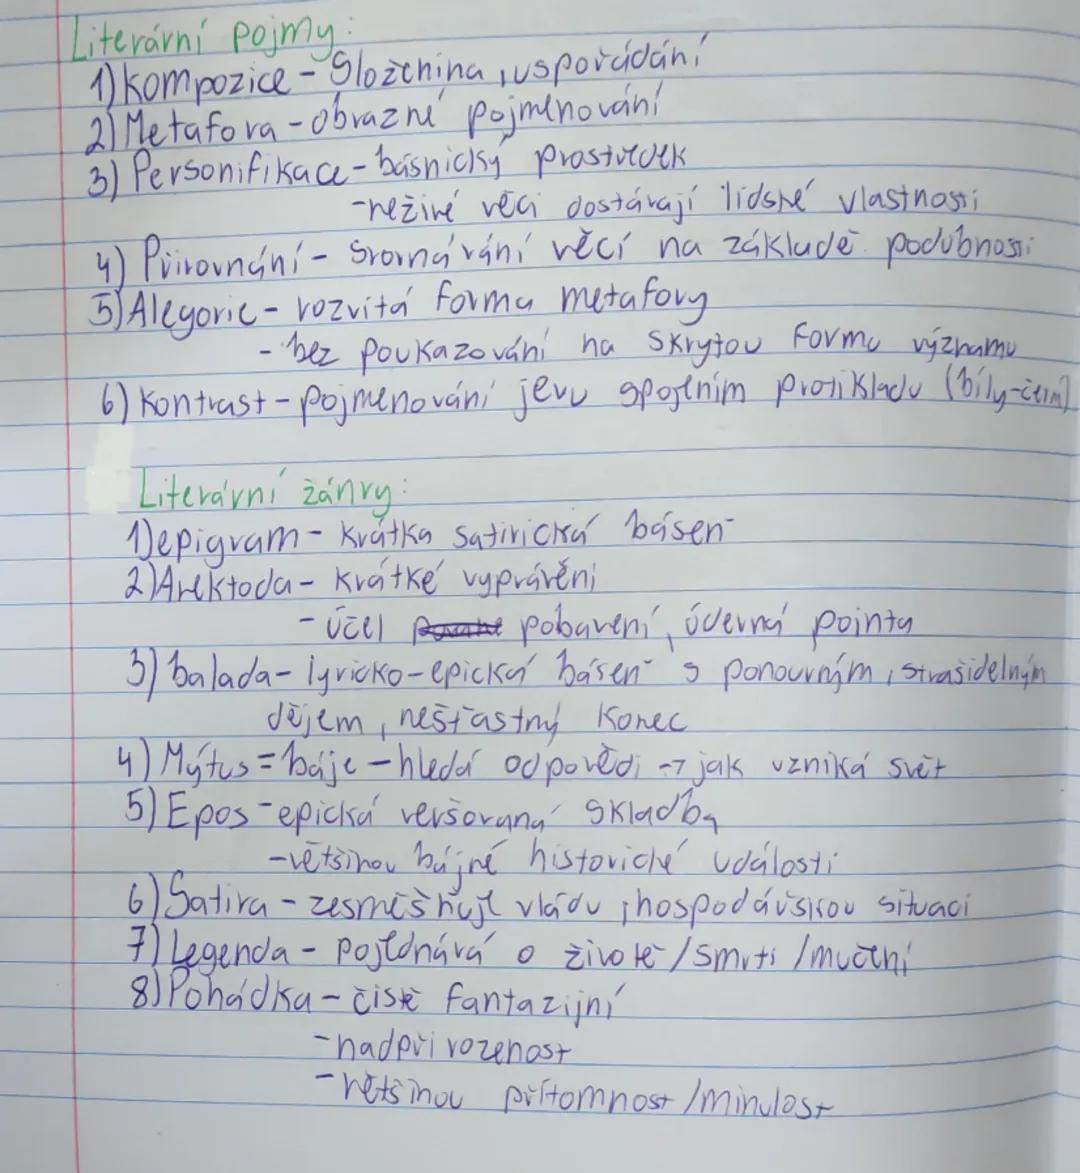 Literární pojmy:
1) Kompozice - Složenina, uspořádání
2) Metafora - obrazné pojmenování
3) Personifikace - básnický prostředek
- neživé věci dostávají lidské vlastnosti
4) Přirovnání - Srovnávání věcí na základě podobnosti
5) Alegorie - rozvitá forma metafory
- bez poukazování na skrytou formu významu
6) Kontrast - pojmenování jevu spojením protikladu (bílý-černý)
Literární žánry:
1) epigram - krátka satirická báseň
2) Anektoda - krátké vyprávění
- účel pobavení, úderná pointa
3) balada - lyricko-epická báseň s ponourným, strašidelným
dějem, nešťastný konec
4) Mýtus = báje - hledá odpovědi → jak vzniká svět
5) Epos - epická veršovaná skladba
- většinou bájné historické události
6) Satira - zesměšňuje vládu, hospodářskou situaci
7) Legenda - pojednává o životě / smrti / mučení
8) Pohádka - čistě fantazijní
- nadpřirozenost
- většinou přítomnost / minulost